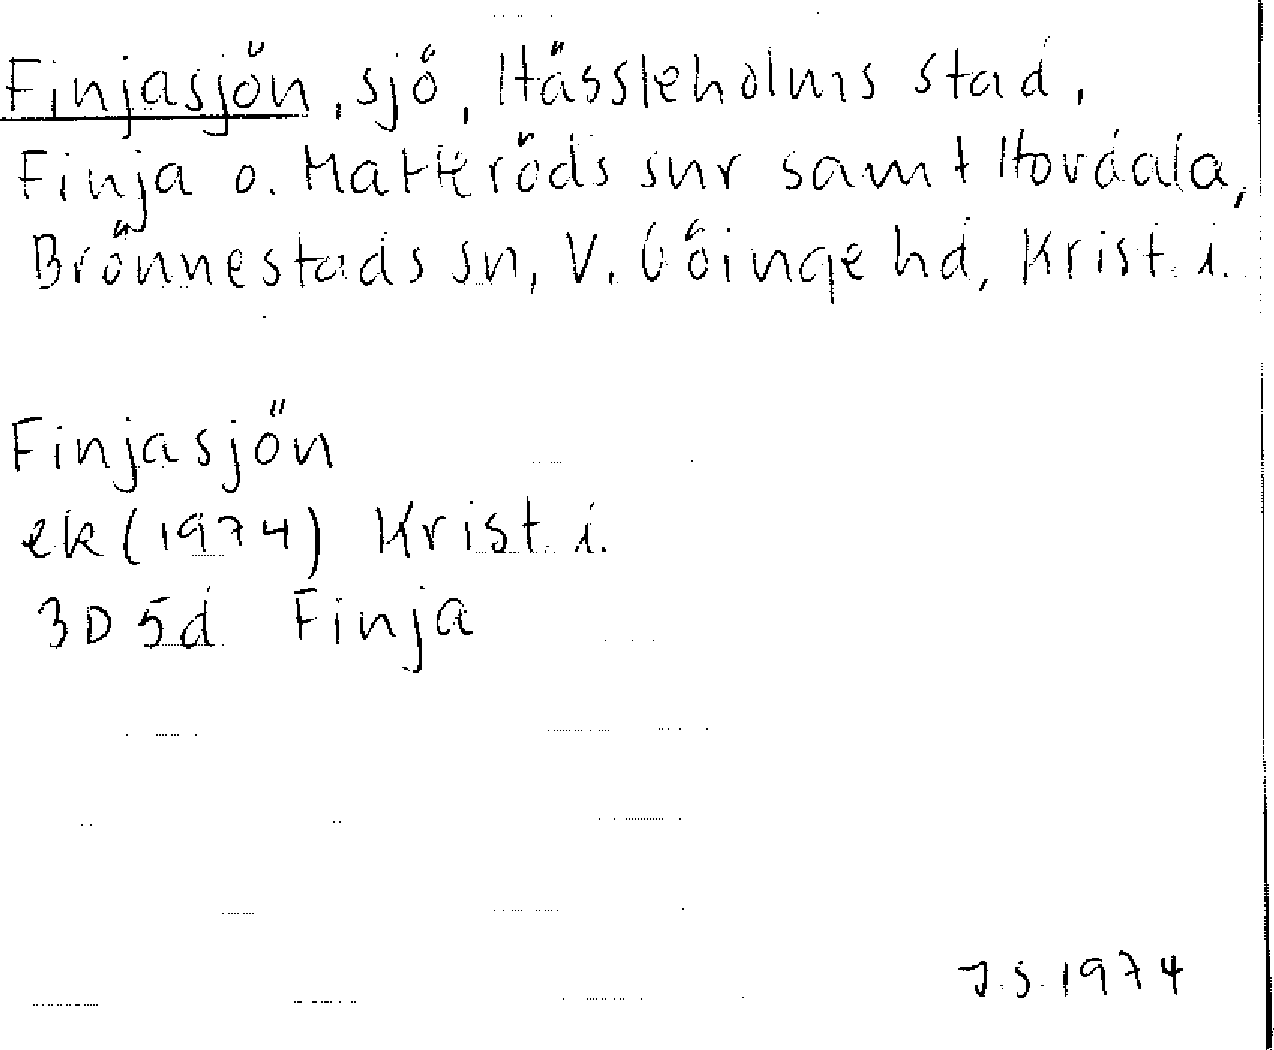 Finjasjön, sjö, Hässleholms stad,
Finja o. Matteröds snr samt Hovdala,
Brönnestads sn, V. Göinge hd, Krist. i.
Finjasjön
ek (1974) Krist. i.
3D 5d Finja
J.S. 1974